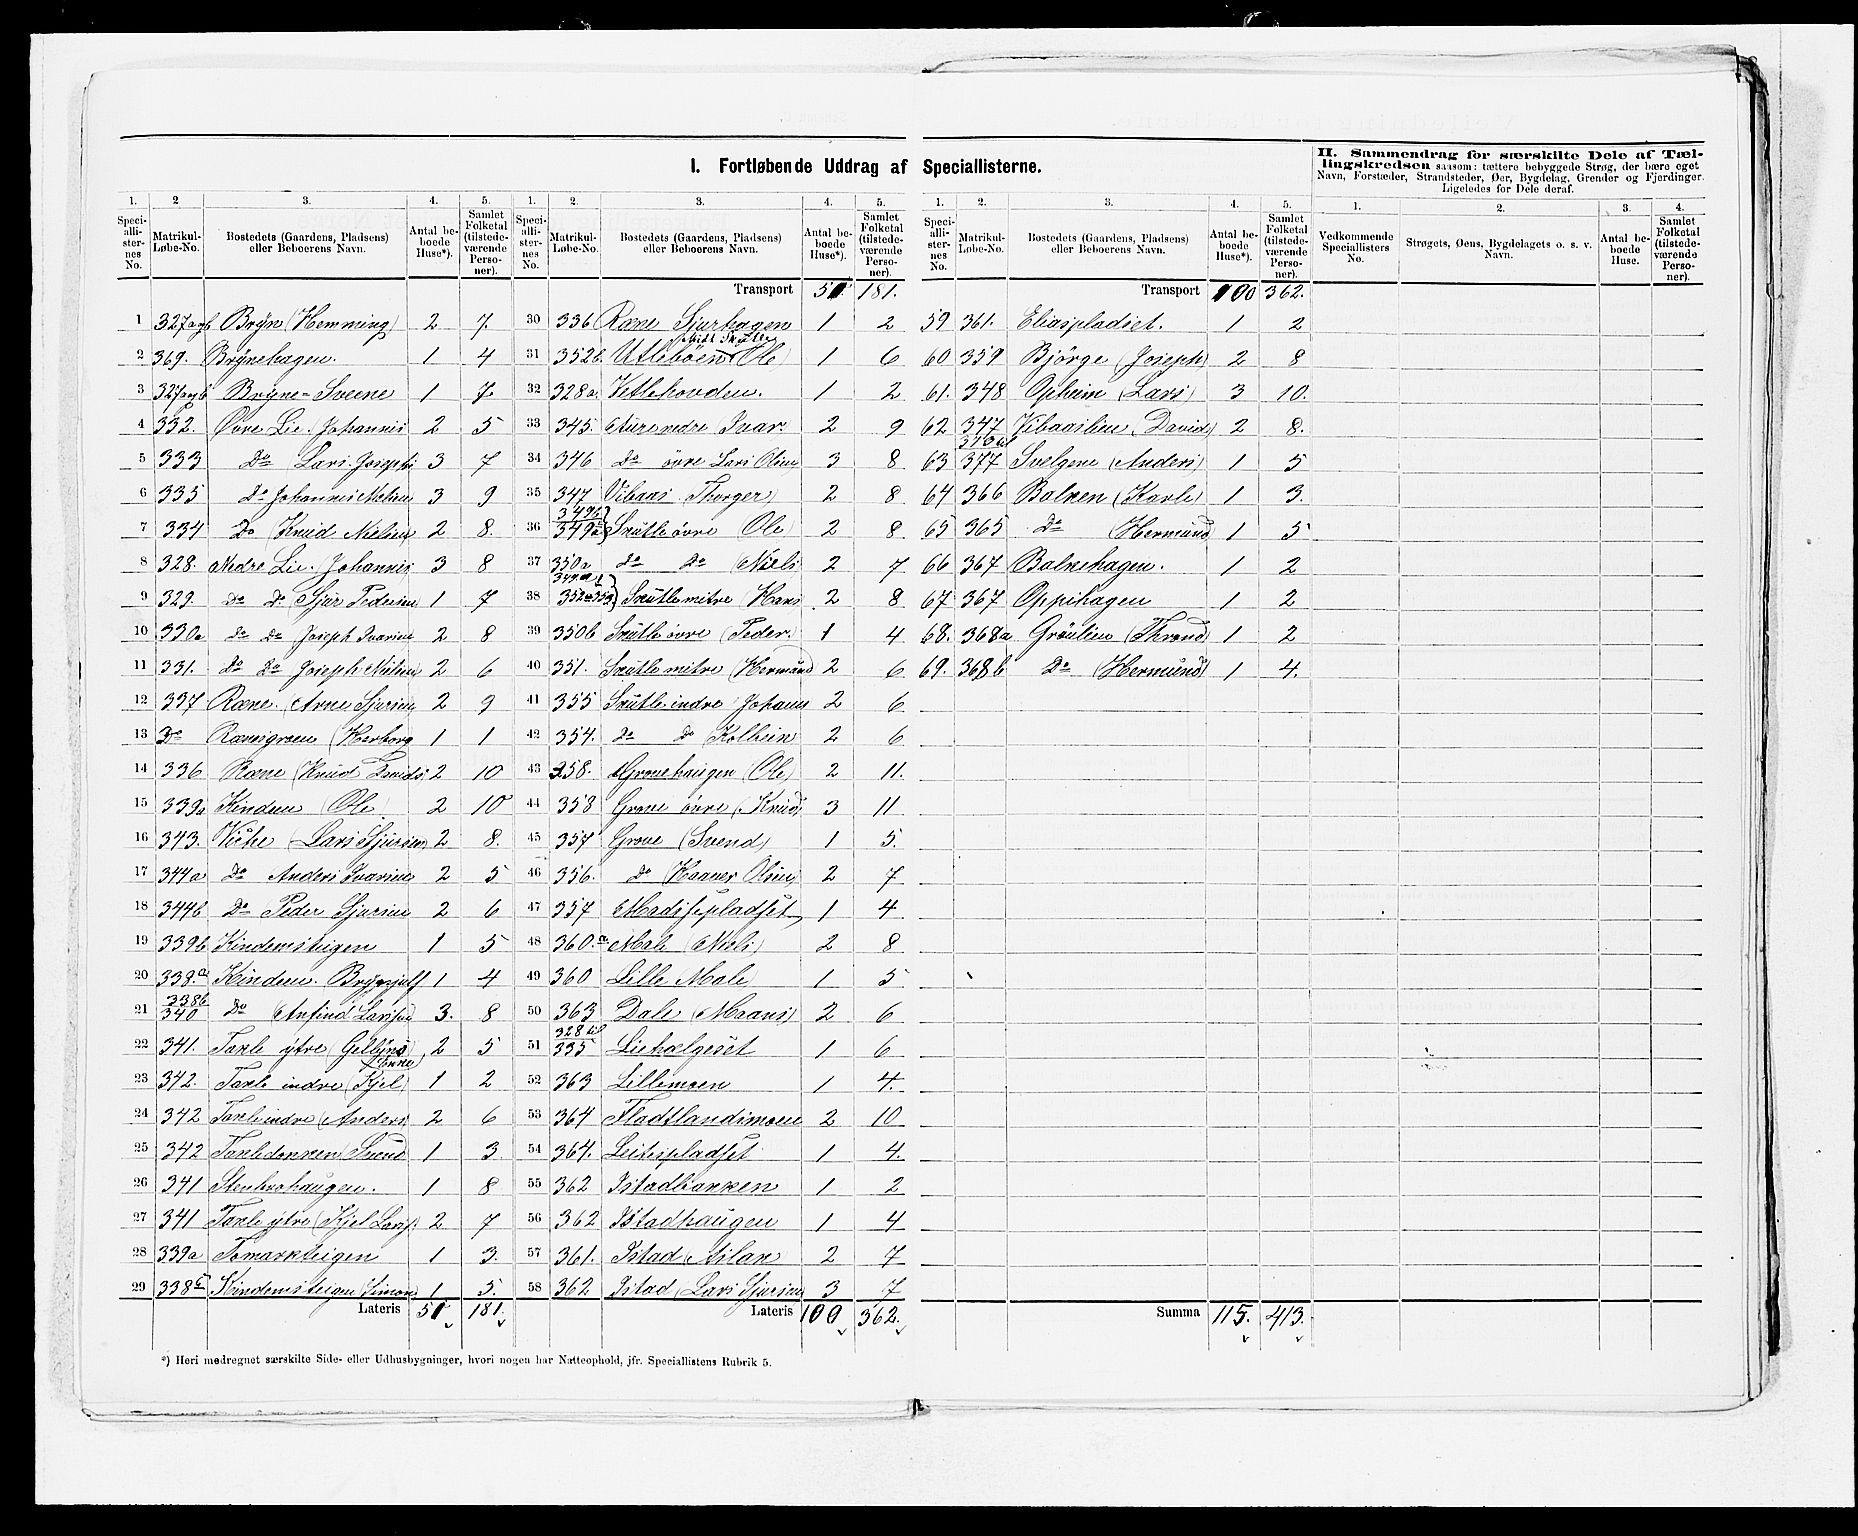 I. Fortløbende Uddrag af Speciallisterne.
II. Sammendrag for særskilte Dele af Tællingskredsen saasom: tættere bebyggede Strøg, der bære eget
Navn, Forstæder, Strandsteder, Øer, Bygdelag, Grender og Fjerdinger.
Ligeledes for Dele deraf.
1. 2 3. 4. 5.
Speciallisternes No. Matrikul-Løbe-No. Bostedets (Gaardens, Pladsens) eller Beboerens Navn. Antal beboede Huse*). Samlet Folketal (tilstedeværende Personer).
1 327a&b Bryn (Hemming) 2 7.
2 369. Brynehagen. 1 4
3 327a&b Bryne-Sveene 1 7
4 332. Øvre Lie. Johannis 2 5
5 333 Do Lars Josephs 3 7
6 335 Do Johannis Nielsen 3 9
7 334 Do (Knud Nielsen) 2 8.
8 328. Nedre Lie. Johannis 3 8
9 329. Do Do (Sjur Pedersen 1 7
10 330a Do Do Joseph Ivarsen 2 8
11 331. Do Do Joseph Nielsen 2 6
12 337 Ræne. (Arne Sjursen) 2 9
13 Do Rænsigroen (Herborg 1 1
14 336 Ræne (Knud Davids. 2 10
15 339a Kindem (Ole) 2 10
16 343. Vethe (Lars Sjursen) 2 8.
17 344a Do Anders Ivarsen 2 5
18 344b Do Peder Sjursen 2 6
19 339b Kindemsteigen 1 5
20 338.a Kindem. Brynjulf 1 4
21 338b 340 Do (Anfind Larssen 3. 8
22 341. Taxle ytre (Gellyns Enke) 2 5
23 342. Taxle indre (Kjel) 1 2
24 342 Taxle indre (Anders 2 6
25 342 Taxledokken (Svend 1 3.
26 341 Stenbrohaugen. 1 8
27 341 Taxle ytre (Kjel Lars. 2 7
28 339a Tomarkteigen 1 3.
29 338c Kindemsteigen (Simon 1 5.
Lateris 51 181.
1. 2. 3. 4. 5.
Speciallisternes No. Matrikul-Løbe-No. Bostedets (Gaardens, Pladsens) eller Beboerens Navn. Antal beboede Huse*). Samlet Folketal (tilstedeværende Personer).
Transport 51. 181.
30 336 Ræne Sjurhagen 1 2
31 352b. Utlebøen (Ole) 1 6
32 328a. Vetlehovden. 1 2
33 345. Afure nedre Ivar 2 9
34 346 Do øvre Lars Olsen 3 8
35 347 Vibaas. Thorger) 2 8
36 349b 349a Skutle øvre (Ole) 2 8.
37 350a Do Do (Niels 2 7
38 352a Skutle mitre (Hans 2 8
39 350b Skutle øvre (Peder.) 1 4
40 351. Skutle mitre (Hermund 2 6
41 355 Skutle indre Johann 2 6
42 354. Do Do Kolbein 2 6
43 358. Grovehaugen (Ole) 2 11.
44 358 Grove øvre (Knud) 3 11
45 357 Grove (Svend) 1 5.
46 356. Do (Haaver Olsen) 2 7
47 357 Madsepladset 1 4
48 360.a Male (Niels) 2 8
49 360 Lille Male 1 5
50 363 Dale (Maans) 2 6
51 328 til 335 Liehælgeset 1 6
52 363 Lillemoen 1 4.
53 364 Fladtlandsmoen 2 10
54 364. Leitespladset 1 4.
55 362 Istadbakken 1 2
56 362 Istadhaugen 1 4
57 361. Istad (Aslak) 2 7
58 362 Istad (Lars Sjursen 3 7
Lateris 100 362.
1. 2. 3. 4. 5.
Speciallisternes No. Matrikul-Løbe-No. Bostedets (Gaardens, Pladsens) eller Beboerens Navn. Antal beboede Huse*). Samlet Folketal (tilstedeværende Personer).
Transport 100 362.
59 361. Eliaspladset. 1 2
60 359 Bjørge (Joseph) 2 8
61. 348 Opheim (Lars) 3 10.
62 347 Vibaaslien (David) 2 8.
63 377 Svelgene (Anders) 1 5
64 366 Balken (Karle) 1 3.
65 365 Do (Hermund 1 5
66 367 Balkehagen. 1 2
67 367 Oppihagen 1 2
68. 368a Grønlien (Thrond) 1 2
69. 368b Do (Hermund) 1 4.
Summa 115. 413.
1. 2. 3. 4.
Vedkommende Speciallisters No. Strøgets, Øens, Bygdelagets o. s. v. Navn. Antal beboede Huse. Samlet Folketal (tilstedeværende Personer).
*) Heri medregnet særskilte Side- eller Udhusbygninger, hvori nogen har Natteophold, jfr. Speciallistens Rubrik 5.